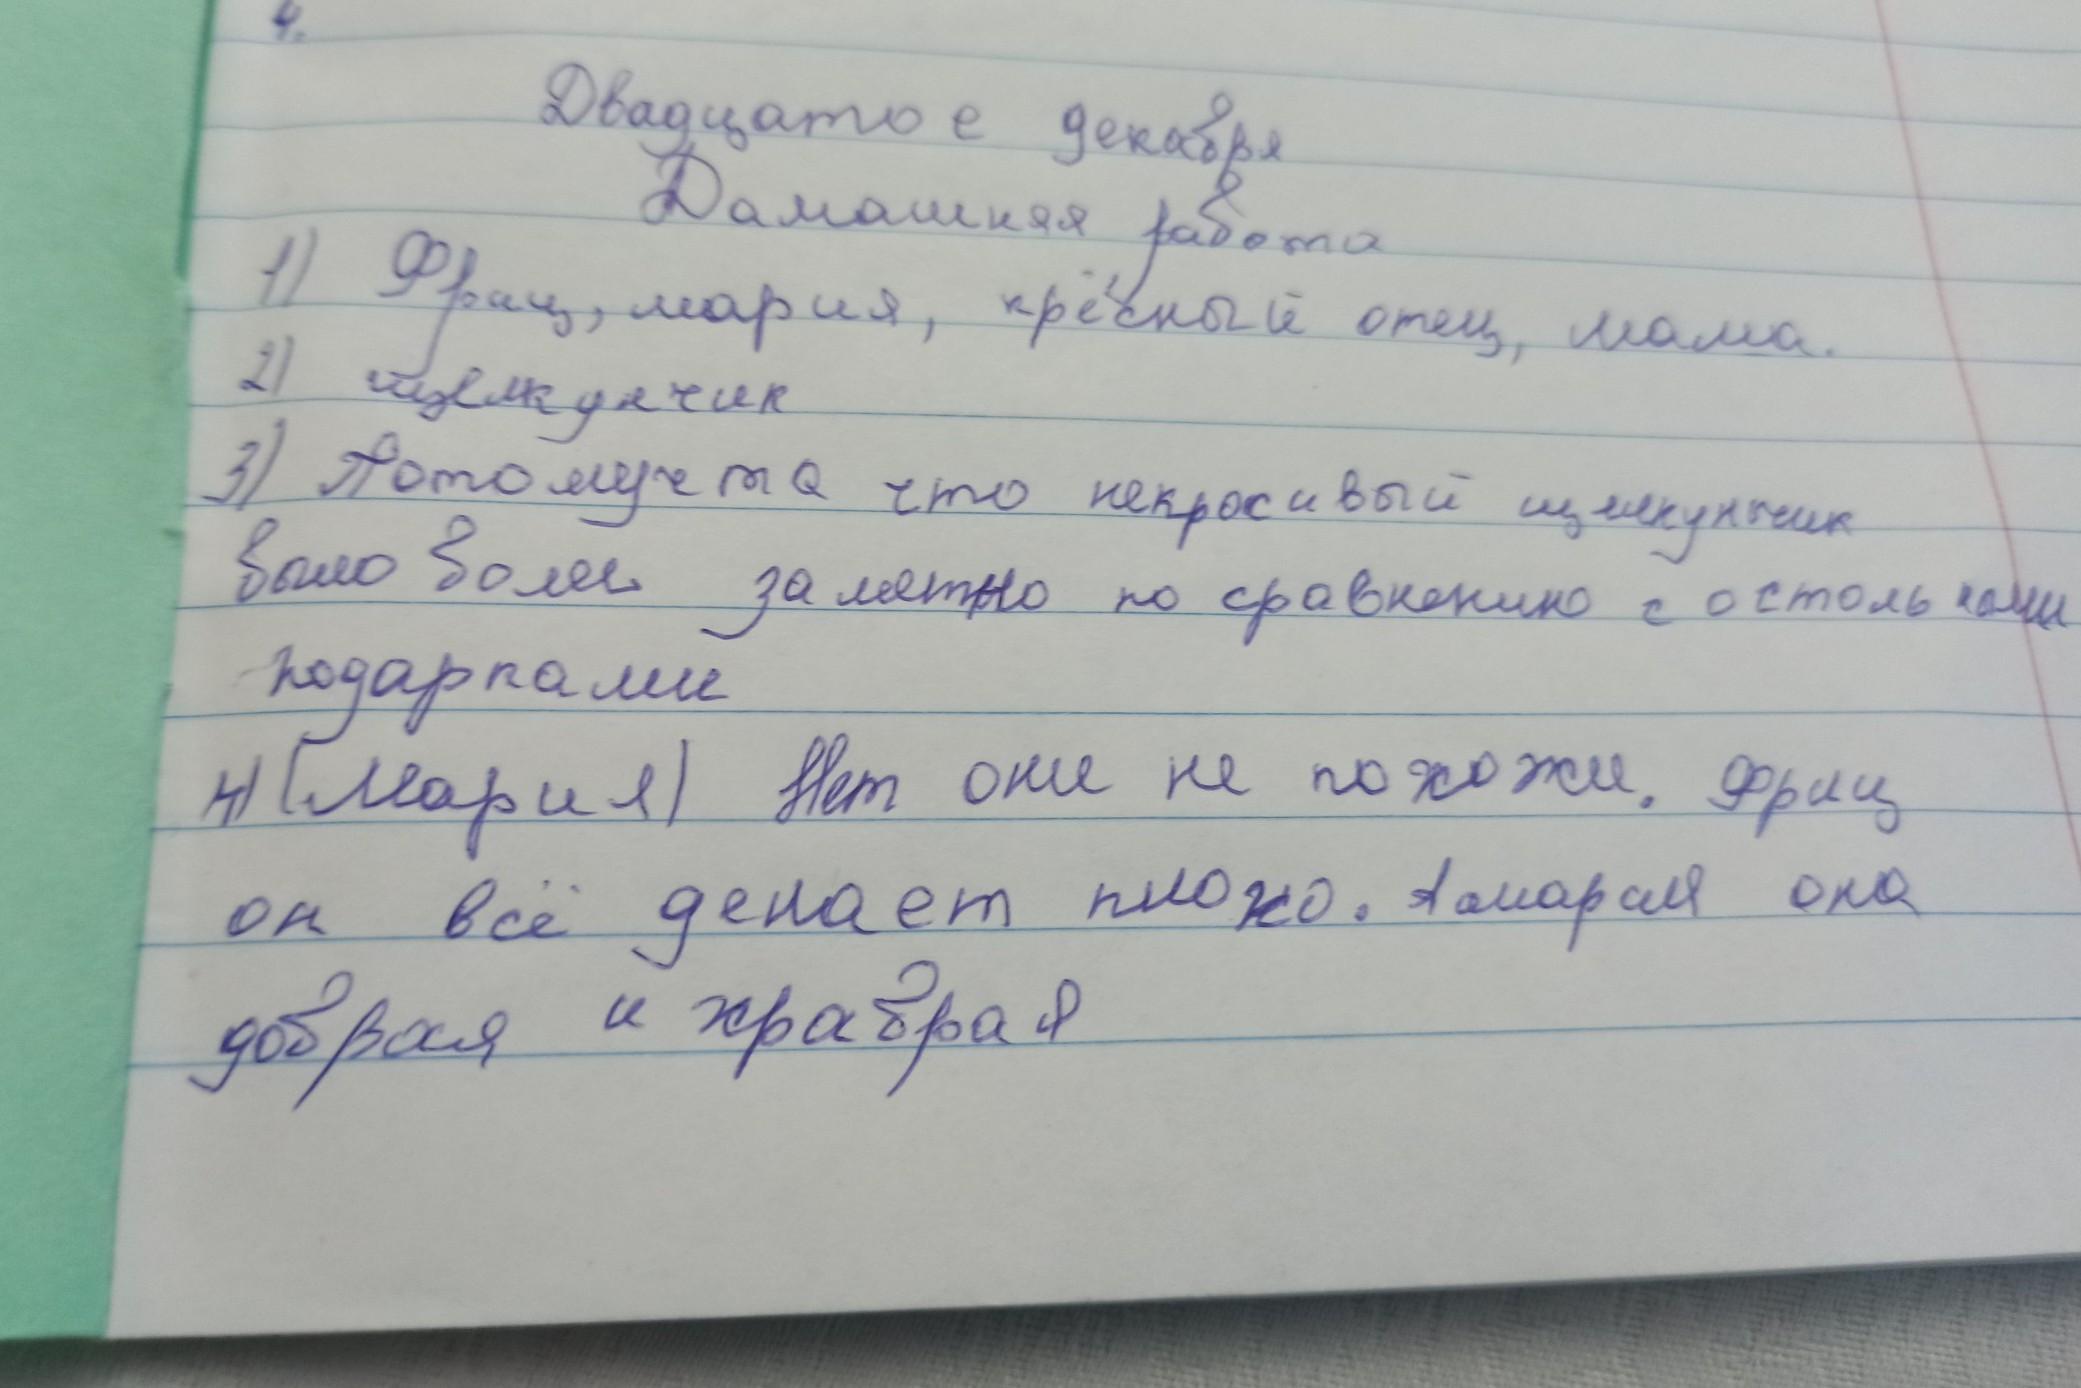 4.
Двадцатое декабря
Дамашняя работа
1) Фрац, мария, крёсный отец, мама.
2) щелкунчик
3) Потомучта что некросивый щелкунчик
было болеи заметно по сравнению состольными
подарками
4) (Мария) Нет они не похожи. Фриц
он всё делает плохо. А мария она
добрая и храбрая